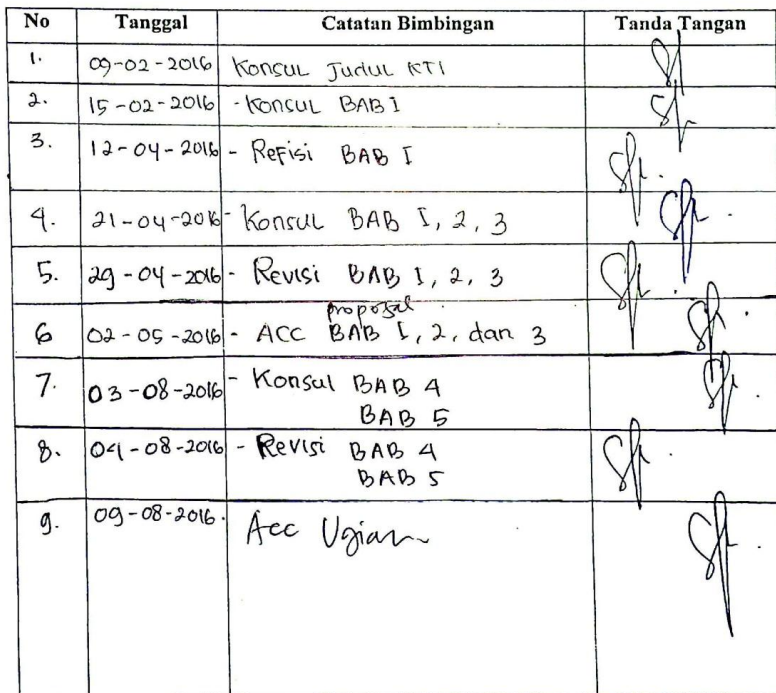 No Tanggal Catatan Bimbingan Tanda Tangan
1. 09-02-2016 Konsul Judul KTI
2. 15-02-2016 - Konsul BAB I
3. 12-04-2016 - Refisi BAB I
4. 21-04-2016 - Konsul BAB I, 2, 3
5. 29-04-2016 - Revisi BAB I, 2, 3
proposal
6 02-05-2016 - ACC BAB I, 2, dan 3
7. 03-08-2016 - Konsul BAB 4
BAB 5
8. 04-08-2016 - Revisi BAB 4
BAB 5
9. 09-08-2016. Acc Ujian